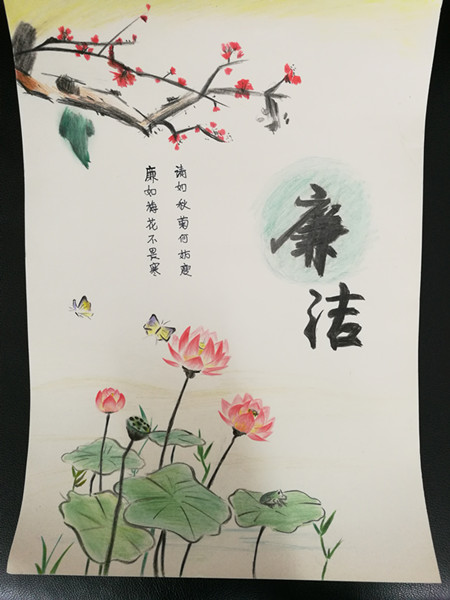 廉洁
清如秋菊何妨瘦
廉如梅花不畏寒